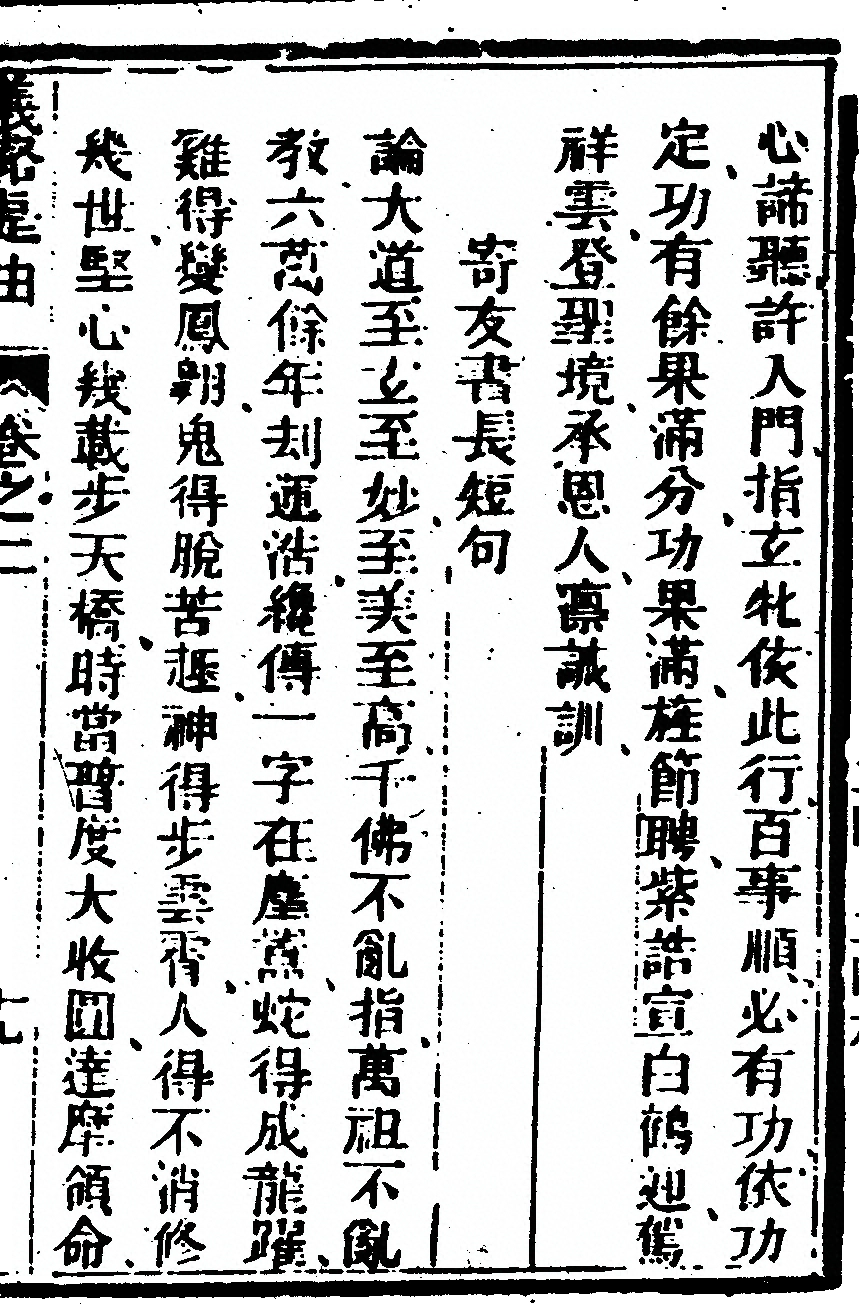 心諦聽許入門指玄牝依此行百事順必有功依功
定功有餘果滿分功果滿旌節聘紫誥宣白鶴迎鸞
祥雲登聖境承恩人稟誠訓
寄友書長短句
論大道至玄至妙至美至高千佛不亂指萬祖不亂
教六萬餘年刦運浩纔傳一字在塵蒿蛇得成龍躍
雞得變鳳翱鬼得脫苦趣神得步雲霄人得不消修
幾世堅心幾載步天橋時當普度大收圓達摩領命
卷之二